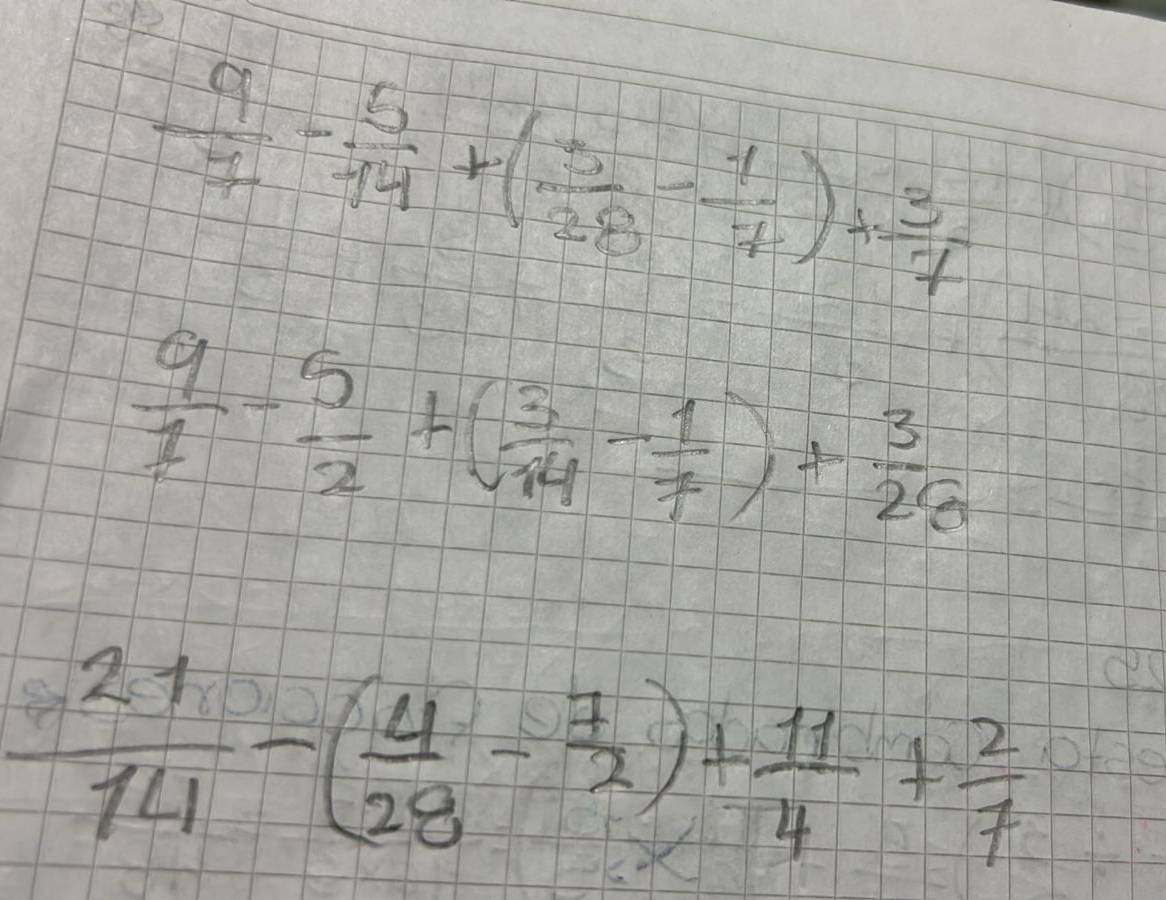 9/7 - 5/14 + (3/28 - 1/7) + 3/7
9/7 - 5/2 + (3/14 - 1/7) + 3/28
21/14 - (4/28 - 7/2) + 11/4 + 2/7